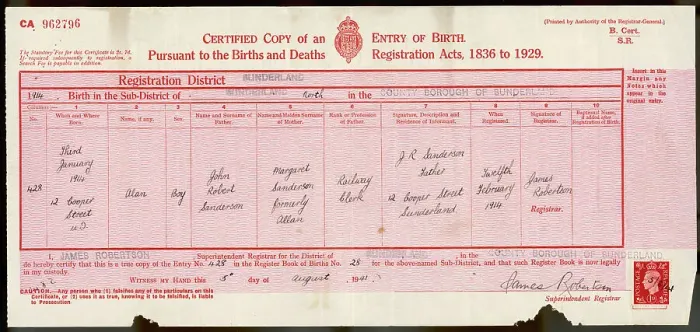 CA 962796
CERTIFIED COPY of an ENTRY OF BIRTH.
Pursuant to the Births and Deaths Registration Acts, 1836 to 1929.
(Printed by Authority of the Registrar-General.)
B. Cert.
S.R.
The Statutory Fee for this Certificate is 2s. 7d.
If required subsequently to registration, a
Search Fee is payable in addition.
Registration District SUNDERLAND
1914. Birth in the Sub-District of SUNDERLAND North in the COUNTY BOROUGH OF SUNDERLAND
Insert in this
Margin any
Notes which
appear in the
original entry.
Columns :— 1 2 3 4 5 6 7 8 9 10
No. When and Where Born. Name, if any. Sex. Name and Surname of Father. Name and Maiden Surname of Mother. Rank or Profession of Father. Signature, Description and Residence of Informant. When Registered. Signature of Registrar. Baptismal Name, if added after Registration of Birth.
428
Third
January
1914
12 Cooper
Street
U.D.
Alan
Boy
John
Robert
Sanderson
Margaret
Sanderson
formerly
Allan
Railway
Clerk
J R Sanderson
Father
12 Cooper Street
Sunderland
Twelfth
February
1914
James
Robertson
Registrar.
I, JAMES ROBERTSON Superintendent Registrar for the District of SUNDERLAND, in the COUNTY BOROUGH OF SUNDERLAND
do hereby certify that this is a true copy of the Entry No. 428 in the Register Book of Births No. 28 for the above-named Sub-District, and that such Register Book is now legally
in my custody.
WITNESS MY HAND this 5th day of august, 1941.
CAUTION.—Any person who (1) falsifies any of the particulars on this
Certificate, or (2) uses it as true, knowing it to be falsified, is liable
to Prosecution.
James Robertson
Superintendent Registrar
POSTAGE REVENUE